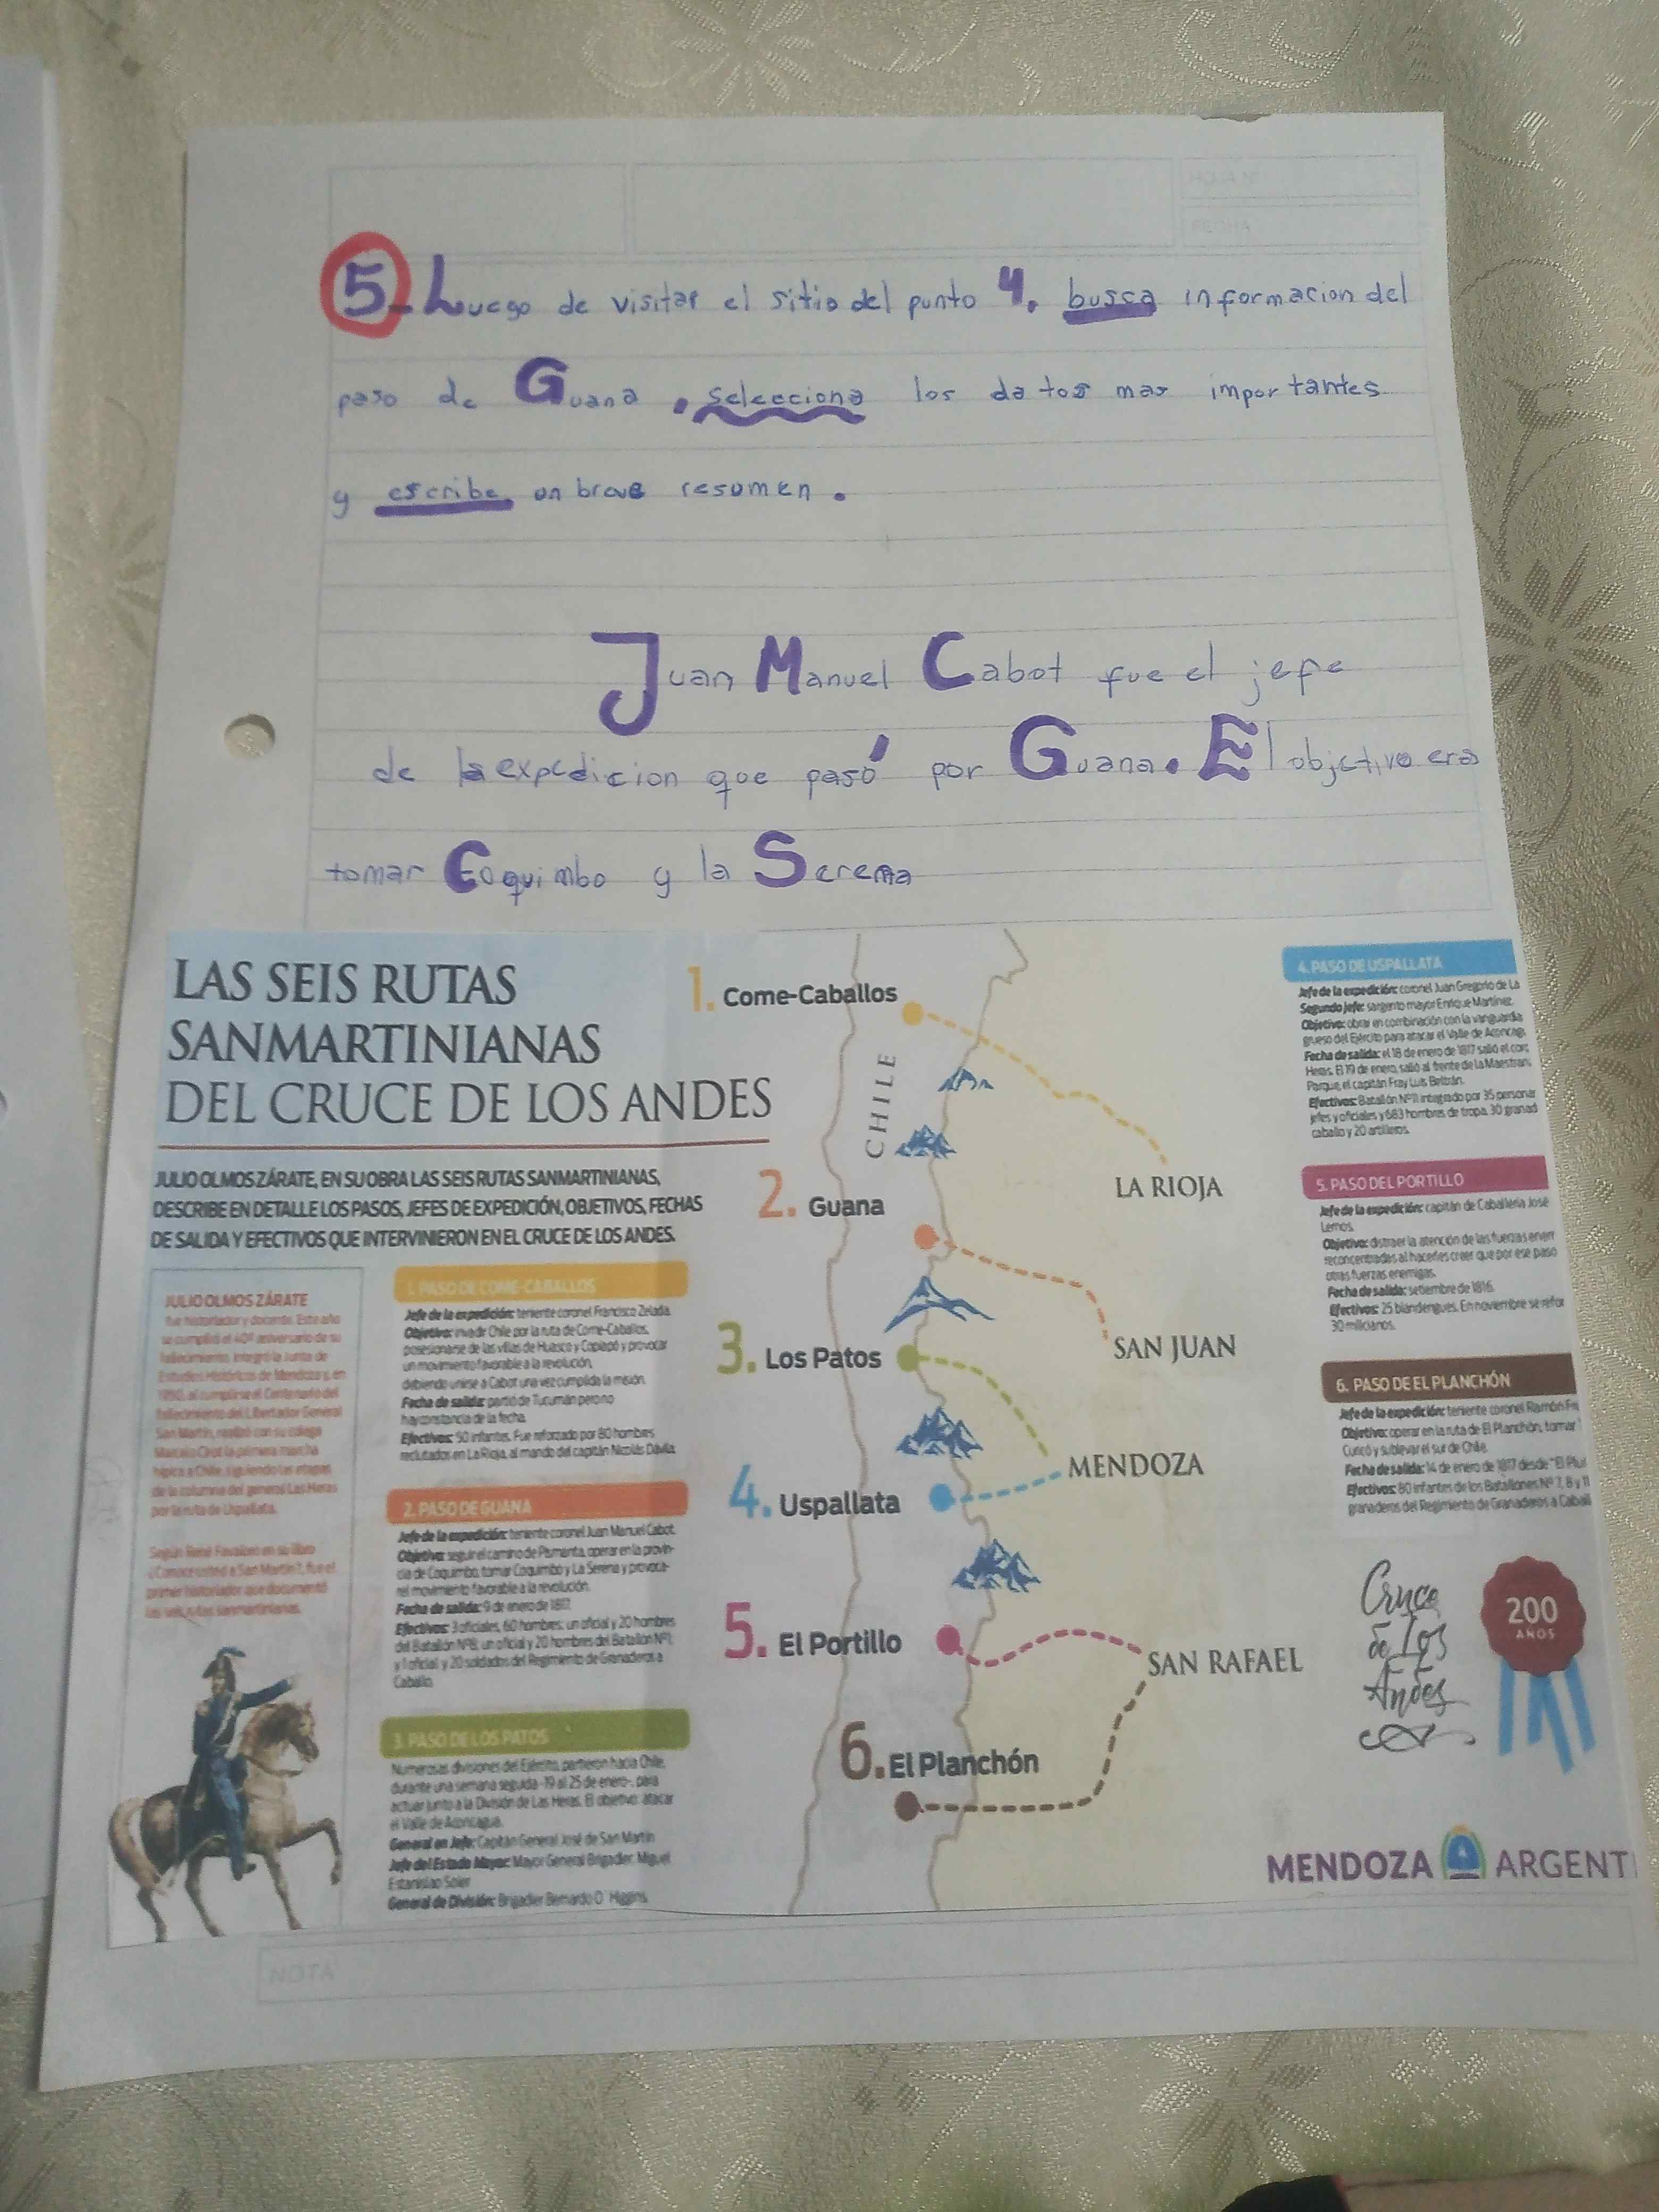 5_ Luego de visitar el sitio del punto 4. busca informacion del
paso de Guana, selecciona los datos mas importantes
y escribe un breve resumen.
Juan Manuel Cabot fue el jefe
de la expedicion que pasó por Guana. El objetivo era
tomar Coquimbo y la Serena
LAS SEIS RUTAS
SANMARTINIANAS
DEL CRUCE DE LOS ANDES
JULIO OLMOS ZÁRATE, EN SU OBRA LAS SEIS RUTAS SANMARTINIANAS,
DESCRIBE EN DETALLE LOS PASOS, JEFES DE EXPEDICIÓN, OBJETIVOS, FECHAS
DE SALIDA Y EFECTIVOS QUE INTERVINIERON EN EL CRUCE DE LOS ANDES.
JULIO OLMOS ZÁRATE
fue historiador y docente. Este año
se cumplió el 40º aniversario de su
fallecimiento. Integró la Junta de
Estudios Históricos de Mendoza y, en
1950, al cumplirse el Centenario del
fallecimiento del Libertador General
San Martín, realizó con su colega
la primera marcha
hípica a Chile, siguiendo las etapas
de la columna del general Las Heras
por la ruta de Uspallata.
Según René Favaloro en su libro
¿Conoce usted a San Martín?, fue el
primer historiador que documentó
las seis rutas sanmartinianas.
1. PASO DE COME-CABALLOS
Jefe de la expedición: teniente coronel Francisco Zelada.
Objetivo: invadir Chile por la ruta de Come-Caballos,
posesionarse de las villas de Huasco y Copiapó y provocar
un movimiento favorable a la revolución,
debiendo unirse a Cabot una vez cumplida la misión.
Fecha de salida: partió de Tucumán pero no
hay constancia de la fecha.
Efectivos: 50 infantes. Fue reforzado por 80 hombres
reclutados en La Rioja, al mando del capitán Nicolás Dávila.
2. PASO DE GUANA
Jefe de la expedición: teniente coronel Juan Manuel Cabot.
Objetivo: seguir el camino de Pismanta, operar en la provin-
cia de Coquimbo, tomar Coquimbo y La Serena y provoca-
rel movimiento favorable a la revolución.
Fecha de salida: 9 de enero de 1817.
Efectivos: 3 oficiales, 60 hombres; un oficial y 20 hombres
del Batallón Nº8; un oficial y 20 hombres del Batallón Nº1;
y 1 oficial y 20 soldados del Regimiento de Granaderos a
Caballo.
3. PASO DE LOS PATOS
Numerosas divisiones del Ejército, partieron hacia Chile,
durante una semana seguida -19 al 25 de enero-, para
actuar junto a la División de Las Heras. El objetivo: atacar
el Valle de Aconcagua.
General en Jefe: Capitán General José de San Martín
Jefe del Estado Mayor: Mayor General Brigadier, Miguel
Estanislao Soler
General de División: Brigadier Bernardo O´Higgins.
1. Come-Caballos
CHILE
LA RIOJA
2. Guana
SAN JUAN
3. Los Patos
MENDOZA
4. Uspallata
5. El Portillo
SAN RAFAEL
6. El Planchón
4. PASO DE USPALLATA
Jefe de la expedición: coronel Juan Gregorio de La
Segundo Jefe: sargento mayor Enrique Martínez.
Objetivo: obrar en combinación con la vanguardia
grueso del Ejército para atacar el Valle de Aconcag
Fecha de salida: el 18 de enero de 1817 salió el cor
Heras. El 19 de enero, salió al frente de la Maestran
Parque, el capitán Fray Luis Beltrán.
Efectivos: Batallón Nº11 integrado por 35 personar
jefes y oficiales y 683 hombres de tropa, 30 granad
caballo y 20 artilleros.
5. PASO DEL PORTILLO
Jefe de la expedición: capitán de Caballería José
Lemos.
Objetivo: distraer la atención de las fuerzas enem
reconcentradas al hacerles creer que por ese paso
otras fuerzas enemigas.
Fecha de salida: setiembre de 1816.
Efectivos: 25 blandengues. En noviembre se refor
30 milicianos.
6. PASO DE EL PLANCHÓN
Jefe de la expedición: teniente coronel Ramón Fr
Objetivo: operar en la ruta de El Planchón, tomar
Curicó y sublevar el sur de Chile.
Fecha de salida: 14 de enero de 1817 desde "El Plu
Efectivos: 80 infantes de los Batallones Nº 7, 8 y 11
granaderos del Regimiento de Granaderos a Caball
Cruce
de Los
Andes
200
AÑOS
MENDOZA ARGENTI
NOTA
HOJA Nº
FECHA